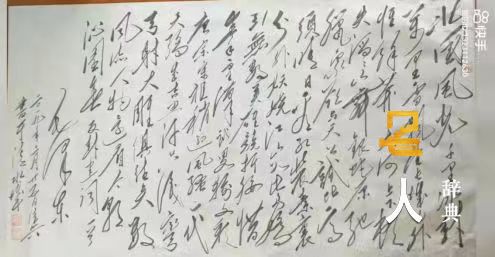 北国风光千里冰封
万里雪飘望长城内外
惟余莽莽大河上下顿
失滔滔山舞银蛇原驰
蜡象欲与天公试比高
须晴日看红装素裹
分外妖娆江山如此多娇
引无数英雄竞折腰惜
秦皇汉武略输文采
唐宗宋祖稍逊风骚一代
天骄成吉思汗只识弯
弓射大雕俱往矣数
风流人物还看今朝
沁园春
毛泽东
快手
名人辞典